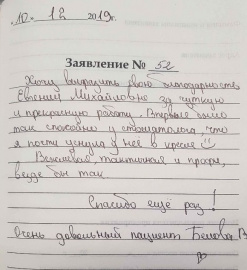 10. 12 2019г.
Заявление № 52
Хочу выразить свою благодарность
Евгении Михайловне за чуткую
и прекрасную работу. Впервые было
так спокойно у стоматолога, что
я почти уснула у неё в кресле
Вежливая, тактичная и профи,
везде бы так
Спасибо ещё раз!
Очень довольный пациент Белова В